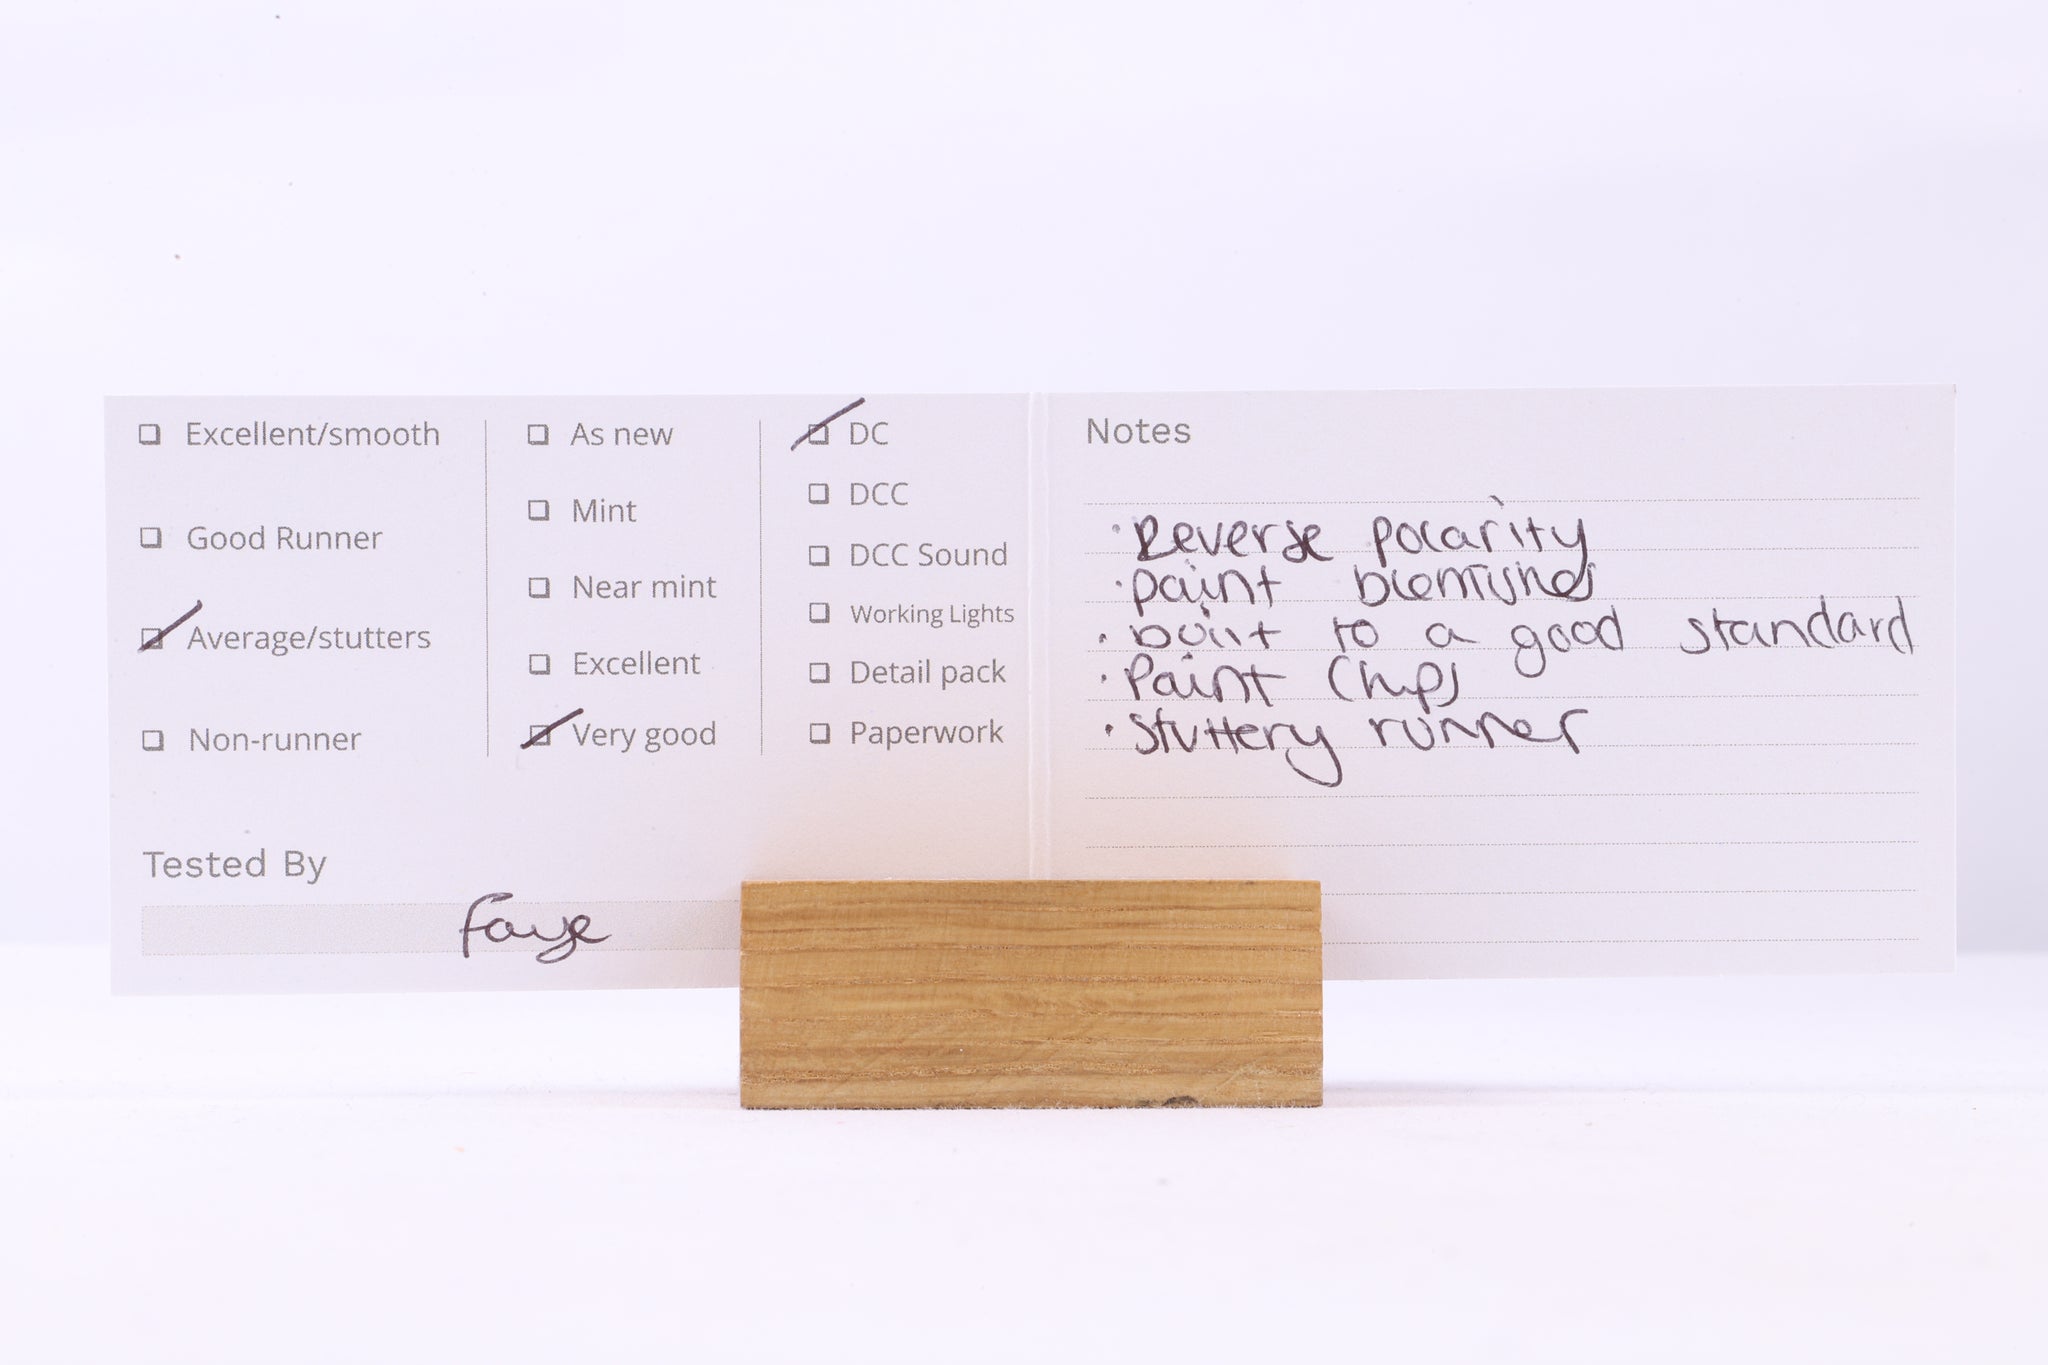 Excellent/smooth
Good Runner
Average/stutters
Non-runner
As new
Mint
Near mint
Excellent
Very good
DC
DCC
DCC Sound
Working Lights
Detail pack
Paperwork
Tested By
Faye
Notes
· Reverse polarity
· paint blemishes
· built to a good standard
· Paint chips
· stuttery runner